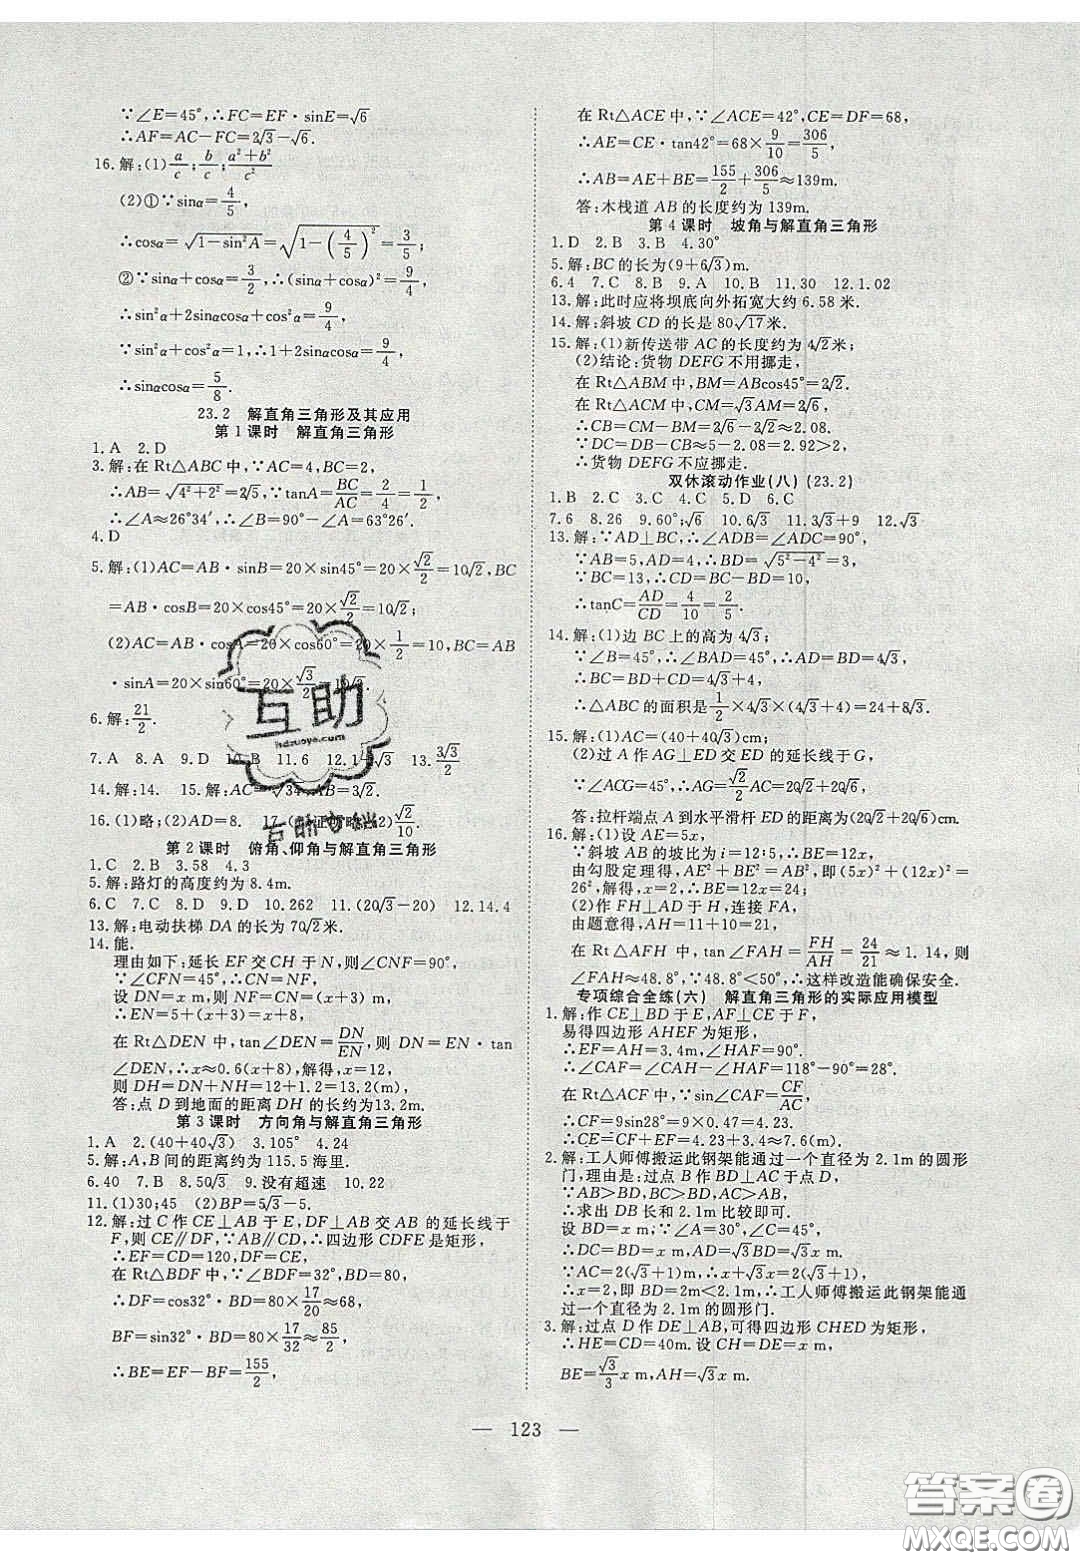 ∵∠E=45°,∴FC=EF·sinE=√6
∴AF=AC-FC=2√3-√6.
16.解:(1)a/c;b/c;(a²+b²)/c²
(2)①∵sinα=4/5,
∴cosα=√(1-sin²A)=√(1-(4/5)²)=3/5;
②∵sinα+cosα=3/2,∴(sinα+cosα)²=9/4,
∴sin²α+2sinαcosα+cos²α=9/4,
∵sin²α+cos²α=1,∴1+2sinαcosα=9/4,
∴sinαcosα=5/8.
23.2 解直角三角形及其应用
第1课时 解直角三角形
1.A 2.D
3.解:在Rt△ABC中,∵AC=4,BC=2,
∴AB=√(4²+2²)=2√5,∵tanA=BC/AC=2/4=1/2,
∴∠A≈26°34′,∴∠B=90°-∠A=63°26′.
4.D
5.解:(1)AC=AB·sinB=20×sin45°=20×√2/2=10√2,BC
=AB·cosB=20×cos45°=20×√2/2=10√2;
(2)AC=AB·cosA=20×cos60°=20×1/2=10,BC=AB
·sinA=20×sin60°=20×√3/2=10√3.
6.解:21/2.
7.A 8.A 9.D 10.B 11.6 12.1-√3 13.3√3/2
14.解:14. 15.解:AC=√34,AB=3√2.
16.(1)略;(2)AD=8. 17.(1)证明略;(2)√2/10.
第2课时 俯角、仰角与解直角三角形
1.C 2.B 3.58 4.3
5.解:路灯的高度约为8.4m.
6.C 7.C 8.D 9.D 10.262 11.(20√3-20) 12.14.4
13.解:电动扶梯DA的长为70√2米.
14.能.
理由如下:延长EF交CH于N,则∠CNF=90°,
∵∠CFN=45°,∴CN=NF,
设DN=x m,则NF=CN=(x+3)m,
∴EN=5+(x+3)=x+8,
在Rt△DEN中,tan∠DEN=DN/EN,则DN=EN·tan
∠DEN,∴x≈0.6(x+8),解得,x=12,
则DH=DN+NH=12+1.2=13.2(m).
答:点D到地面的距离DH的长约为13.2m.
第3课时 方向角与解直角三角形
1.A 2.(40+40√3) 3.105° 4.24
5.解:A,B间的距离约为115.5海里.
6.40 7.B 8.50√3 9.没有超速 10.22
11.(1)30;45 (2)BP=5√3-5.
12.解:过C作CE⊥AB于E,DF⊥AB交AB的延长线于
F,则CE∥DF,∵AB∥CD,∴四边形CDFE是矩形,
∴EF=CD=120,DF=CE.
在Rt△BDF中,∵∠BDF=32°,BD=80,
∴DF=cos32°·BD=80×17/20≈68,
BF=sin32°·BD=80×17/32≈85/2,
∴BE=EF-BF=155/2,
在Rt△ACE中,∵∠ACE=42°,CE=DF=68,
∴AE=CE·tan42°=68×9/10=306/5,
∴AB=AE+BE=155/2+306/5≈139m.
答:木栈道AB的长度约为139m.
第4课时 坡角与解直角三角形
1.D 2.B 3.B 4.30°
5.解:BC的长为(9+6√3)m.
6.4 7.C 8.B 9.A 10.B 11.30 12.1.02
13.解:此时应将坝底向外拓宽大约6.58米.
14.解:斜坡CD的长是80√17米.
15.解:(1)新传送带AC的长度约为4√2米;
(2)结论:货物DEFG不用挪走,
在Rt△ABM中,BM=ABcos45°=2√2.
在Rt△ACM中,CM=√3AM=2√6.
∴CB=CM-BM=2√6-2√2≈2.08.
∵DC=DB-CB≈5-2.08=2.92>2,
∴货物DEFG不应挪走.
双休滚动作业(八)(23.2)
1.B 2.C 3.C 4.C 5.D 6.C
7.6 8.26 9.60°;√6 10.6√3 11.3√3+9 12.√3
13.解:∵AD⊥BC,∴∠ADB=∠ADC=90°,
∵AB=5,AD=4,∴BD=√(5²-4²)=3,
∵BC=13,∴CD=BC-BD=10,
∴tanC=AD/CD=4/10=2/5.
14.解:(1)边BC上的高为4√3;
∵∠B=45°,∴∠BAD=45°,∴AD=BD=4√3,
∴BC=BD+CD=4√3+4,
∴△ABC的面积是1/2×4√3×(4√3+4)=24+8√3.
15.解:(1)AC=(40+40√3)cm;
(2)过A作AG⊥ED交ED的延长线于G,
∵∠ACG=45°,∴AG=√2/2AC=20√2+20√6,
答:拉杆端点A到水平滑杆ED的距离为(20√2+20√6)cm.
16.解:(1)设AE=5x,
∵斜坡AB的坡比为i=12:5,∴BE=12x,
由勾股定理得,AE²+BE²=AB²,即(5x)²+(12x)²=
26²,解得,x=2,则AE=10,BE=24;
(2)作FH⊥AD于H,连接FA,
由题意得,AH=11+10=21,
在Rt△AFH中,tan∠FAH=FH/AH=24/21≈1.14,则
∠FAH≈48.8°,∵48.8°<50°,∴这样改造能确保安全.
专项综合全练(六) 解直角三角形的实际应用模型
1.解:作CE⊥BD于E,AF⊥CE于F,
易得四边形AHEF为矩形,
∴EF=AH=3.4m,∠HAF=90°.
∴∠CAF=∠CAH-∠HAF=118°-90°=28°.
在Rt△ACF中,∵sin∠CAF=CF/AC,
∴CF=9sin28°=9×0.47=4.23.
∴CE=CF+EF=4.23+3.4≈7.6(m).
2.解:工人师傅搬运此钢架能通过一个直径为2.1m的圆形
门,理由是:过点B作BD⊥AC于点D,
∵AB>BD,BC>BD,AC>AB,
∴求出DB长和2.1m比较即可.
设BD=x m,∵∠A=30°,∠C=45°,
∴DC=BD=x m,AD=√3BD=√3x m,
∵AC=2(√3+1)m,∴x+√3x=2(√3+1),
∴x=2,即BD=2m<2.1m,∴工人师傅搬运此钢架能通
过一个直径为2.1m的圆形门.
3.解:过点D作DE⊥AB,可得四边形CHED为矩形,
∴HE=CD=40m.设CH=DE=x m,
BE=√3/3x m,AH=√3x m.
— 123 —
互助
hdzuoye.com
答案圈
MXQE.COM